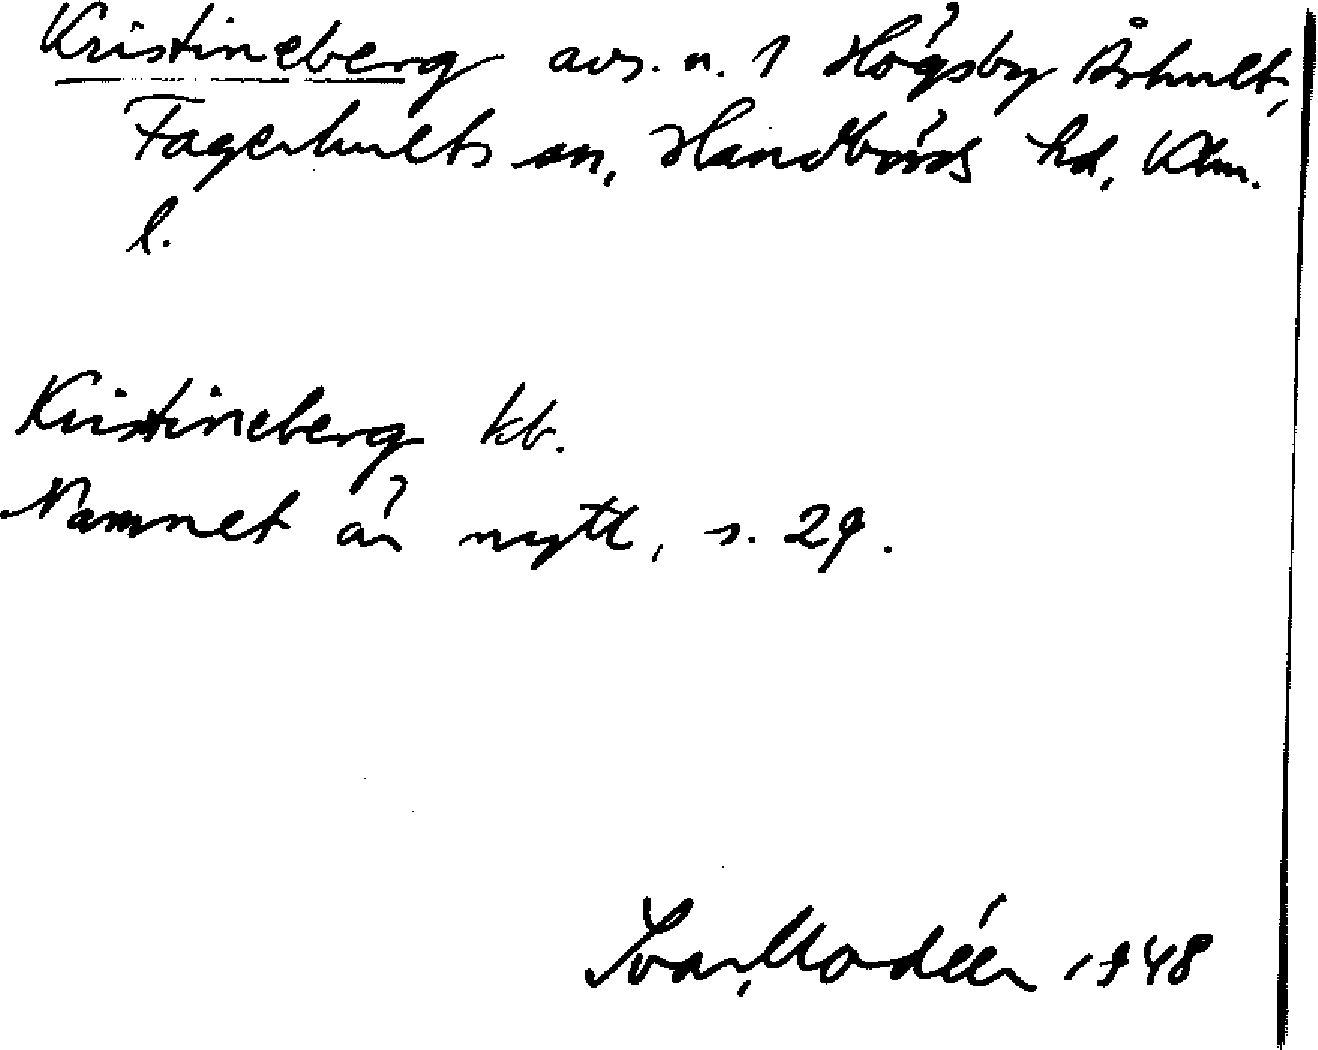 Kristineberg avs. u. 1 Högsby Århult,
Fagerhults sn, Handbörds hd, Klm.
l.
Kristineberg kb.
Namnet är nytt, s. 29.
Ivar Modéer 1948